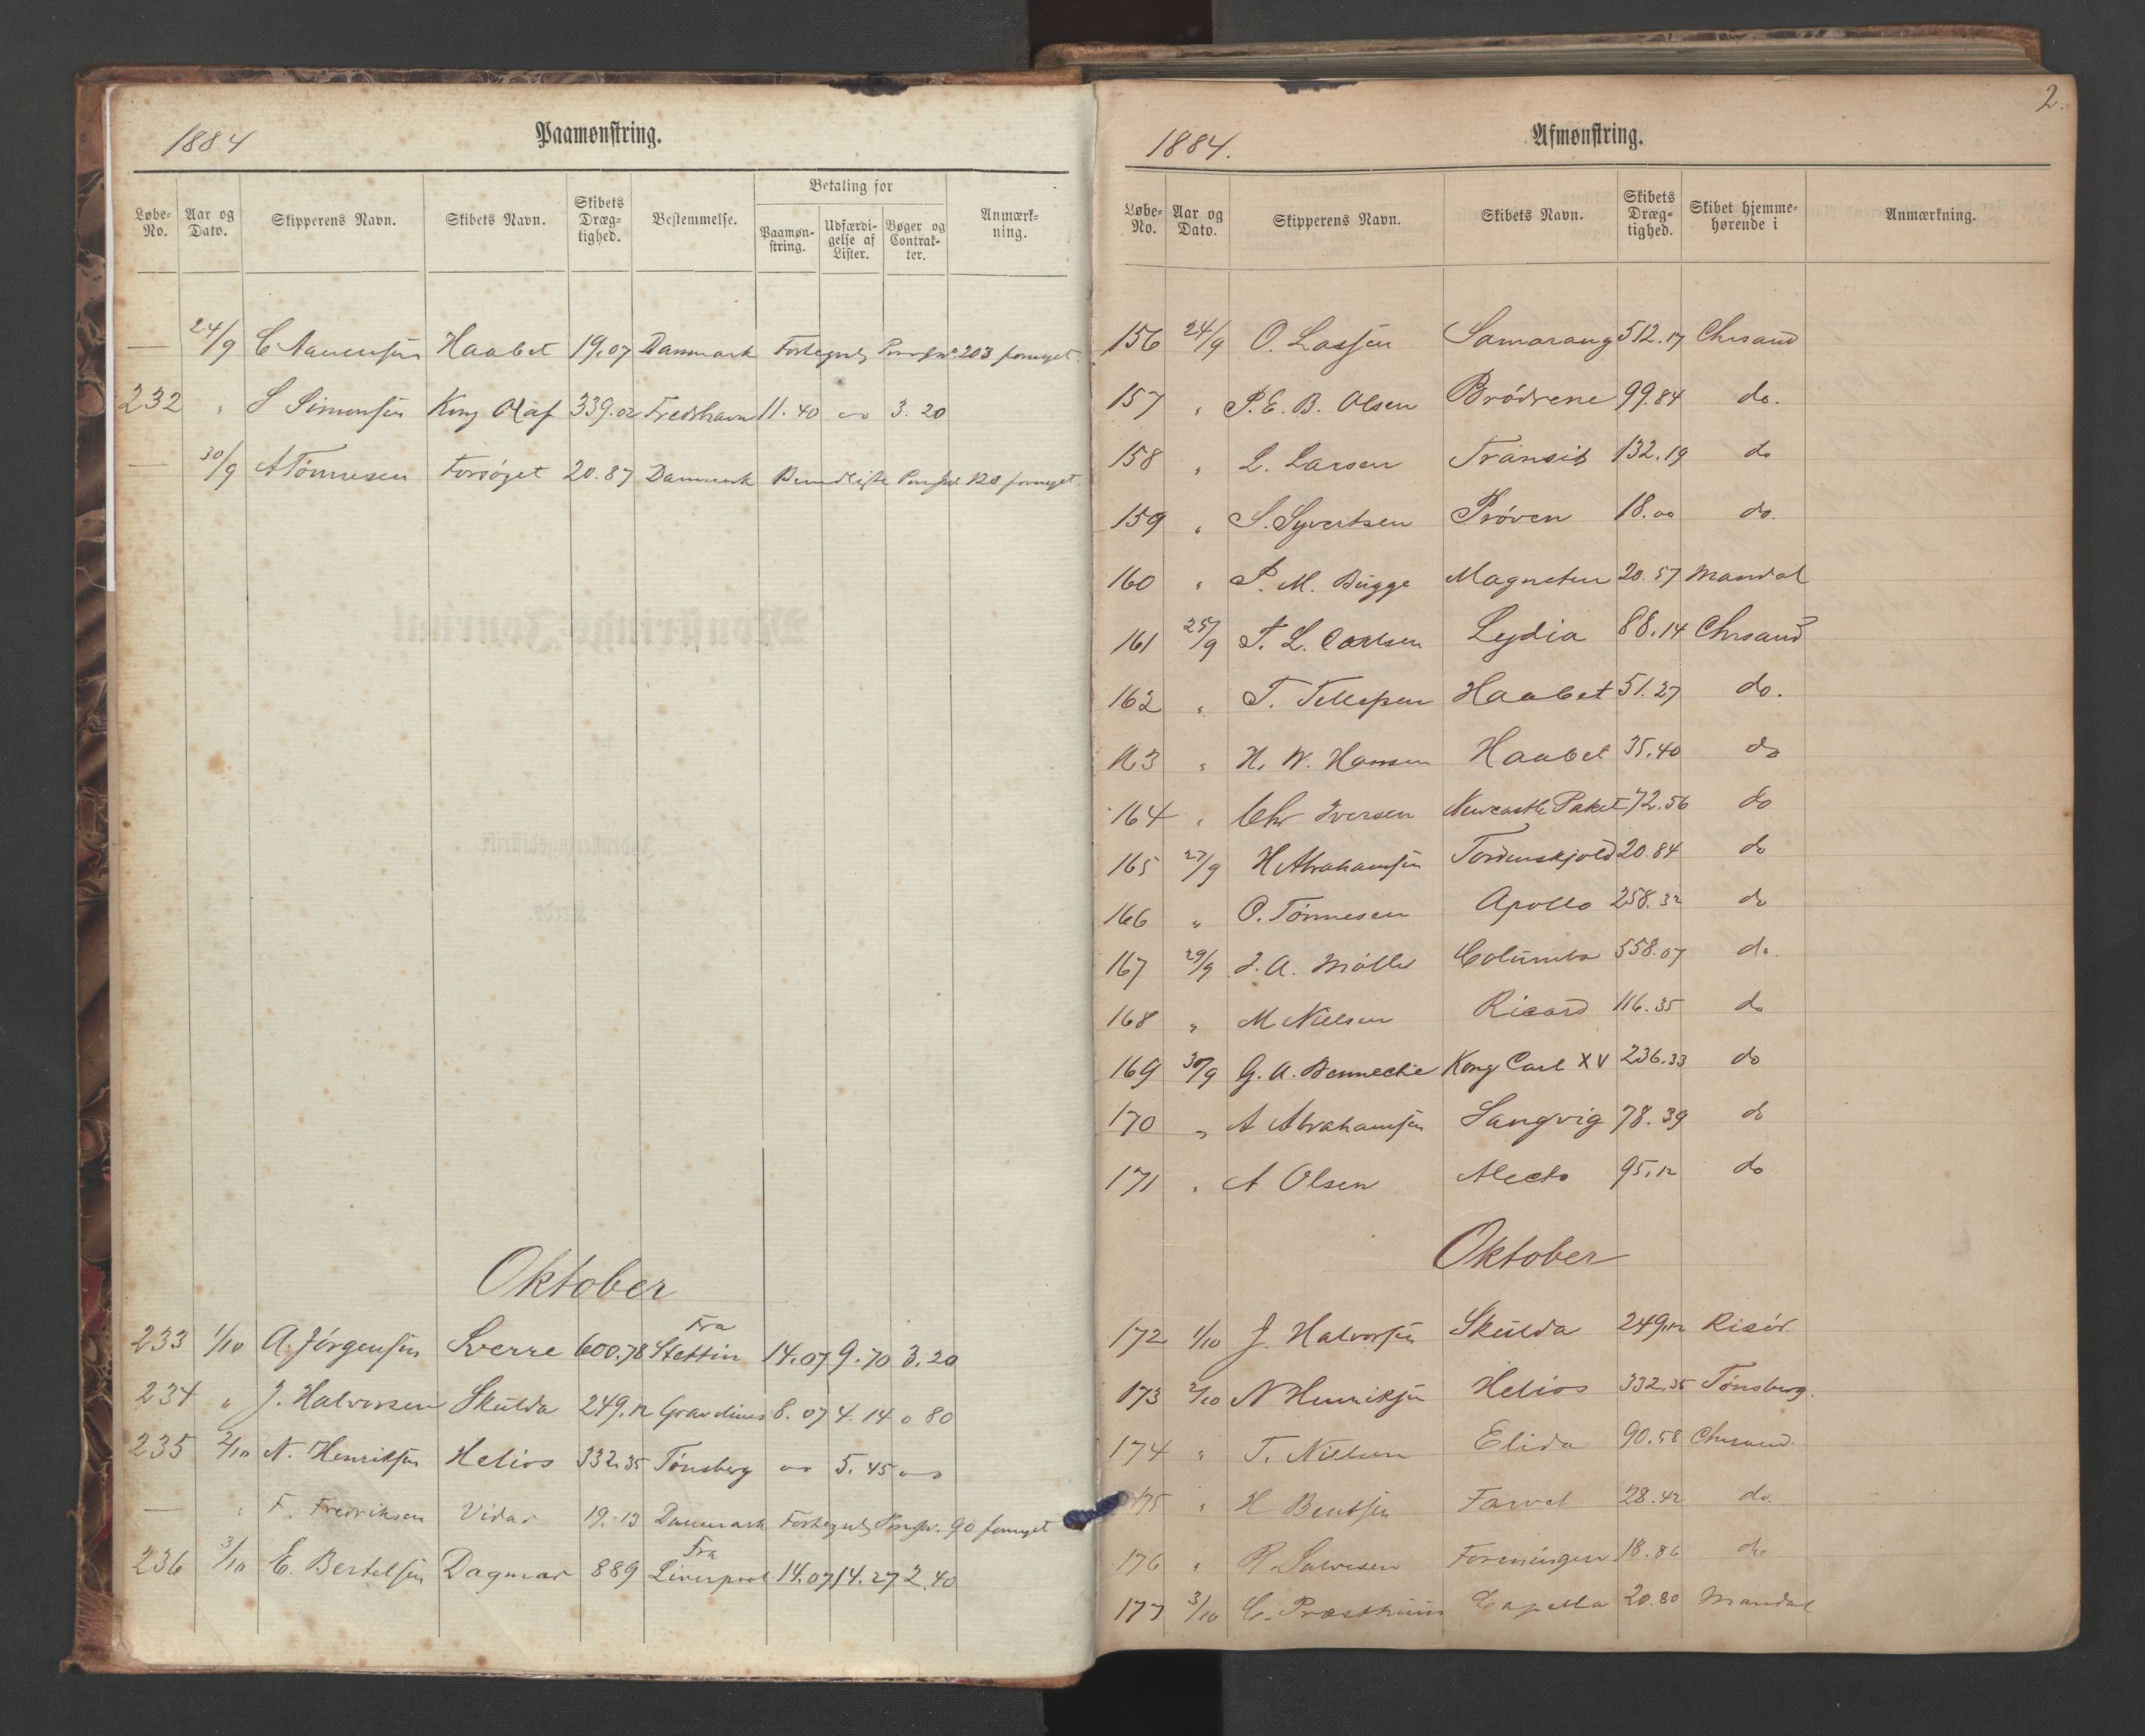 1884 Paamønstring.
Løbe-No. Aar og Dato. Skipperens Navn. Skibets Navn. Skibets Dræg-tighed. Bestemmelse. Betaling for Paamøn-string. Udfærdi-gelse af Lister. Bøger og Contrak-ter. Anmærk-ning.
— 24/9 C Haabet 19.07 Danmark 203 fornyet.
232 " S Simonsen Kong Olaf 339.02 Fredshavn 11.40 3.20
— 30/9 A Tönnesen Forsöget 20.87 Danmark fornyet.
Oktober
233 1/10 A. Jörgensen Sverre 600.78 Fra Stettin 14.07 9.70 3.20
234 " J. Halvorsen Skulda 249.12 8.07 4.14 0 80
235 2/10 N. Henriksen Helios 332.35 Tönsberg 5.45
— " F. Fredriksen Vidar 19.13 Danmark 90 fornyet
236 3/10 E. Bertelsen Dagmar 889 Fra Liverpool 14.07 14.27 2.40
2.
1884. Afmønstring.
Løbe-No. Aar og Dato. Skipperens Navn. Skibets Navn. Skibets Dræg-tighed. Skibet hjemme-hørende i Anmærkning.
156 24/9 O. Lassen Samarang 512.17 Chrsand
157 " P. E. B. Olsen Brödrene 99.84 do.
158 " L. Larsen Transit 132.19 do
159 " S. Syvertsen Pröven 18.00 do.
160 " P. M. Bugge Magneten 20.57 Mandal
161 25/9 T. L. Carlsen Lydia 88.14 Chrsand
162 " T. Tellefsen Haabet 51.27 do.
163 " H. W. Hansen Haabet 35.40 do
164 " Chr Iversen Newcastle Paket 72.56 do
165 27/9 H Abrahamsen Tordenskjold 20.84 do
166 " O. Tönnesen Apollo 258.32 do
167 29/9 J. A. Möller Columba 558.07 do.
168 " M Nielsen Ricard 116.35 do
169 30/9 G. A. Bennechie Kong Carl XV 236.33 do
170 " A Abrahamsen Sangvig 78.39 do
171 " A Olsen Alecto 95.12 do
Oktober
172 1/10 J. Halvorsen Skulda 249.12 Risör.
173 2/10 N Henriksen Helios 332.35 Tönsberg.
174 " T. Nielsen Elida 90.58 Chrsand.
175 " H Bentsen Farvel 28.42 do.
176 " R. Salvesen Foreningen 18.86 do
177 3/10 C. Capella 20.80 Mandal